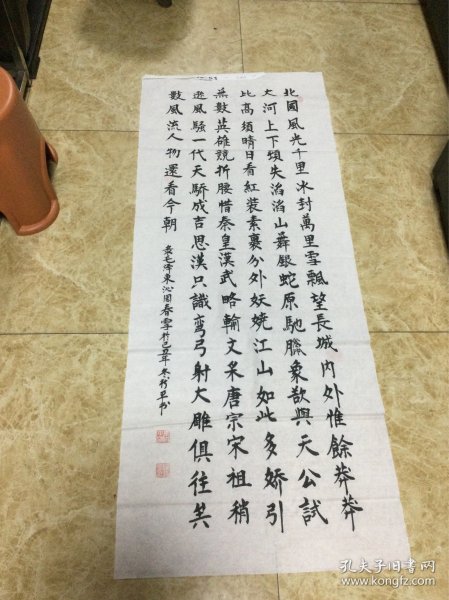 北國風光千里冰封萬里雪飄望長城內外惟餘莽莽
大河上下頓失滔滔山舞銀蛇原馳臘象欲與天公試
比高須晴日看紅裝素裹分外妖嬈江山如此多嬌引
無數英雄競折腰惜秦皇漢武略輸文采唐宗宋祖稍
遜風騷一代天驕成吉思漢只識彎弓射大雕俱往矣
數風流人物還看今朝
毛澤東沁園春雪於己丑年冬書
孔夫子旧书网
www.kongfz.com